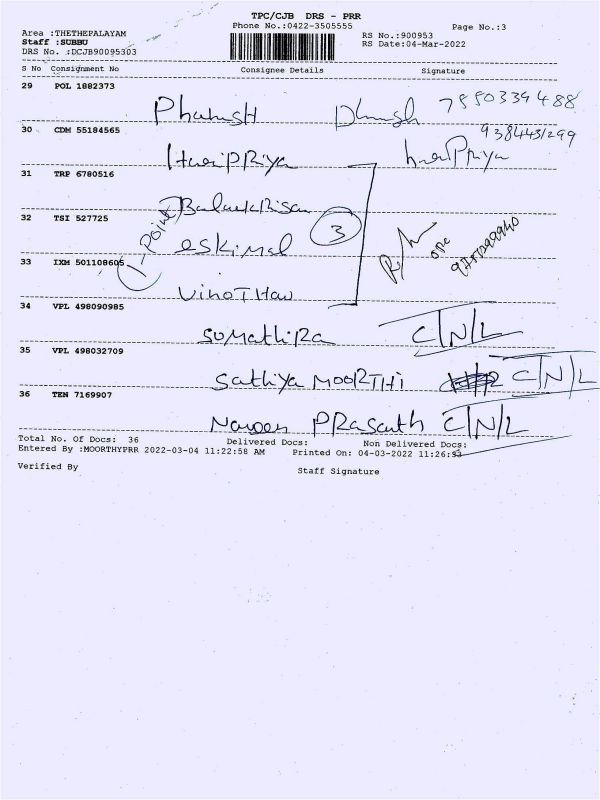 TPC/CJB DRS - PRR
Phone No.:0422-3505555
Page No.:3
Area :THETHEPALAYAM
Staff :SUBBU
DRS No. :DCJB90095303
RS No.:900953
RS Date:04-Mar-2022
S No Consignment No Consignee Details Signature
29 POL 1882373
7550339488
30 CDM 55184565
HariPRiya hariPriya
31 TRP 6780516
32 TSI 527725
1-Point eskimal 3
33 IXM 501108605
34 VPL 498090985
C/N/L
35 VPL 498032709
Sathiya MOORTHi C/N/L
36 TEN 7169907
Naveen PRasath C/N/L
Total No. Of Docs: 36 Delivered Docs: Non Delivered Docs:
Entered By :MOORTHYPRR 2022-03-04 11:22:58 AM Printed On: 04-03-2022 11:26:53
Verified By Staff Signature